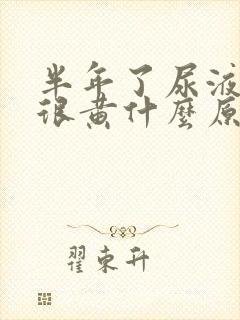 半年了尿液
很黄什麼原
翟東升